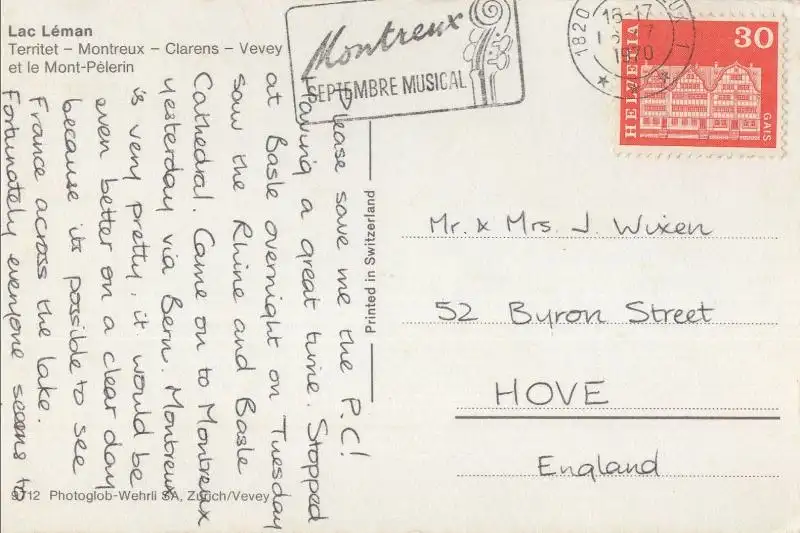 Lac Léman
Territet – Montreux – Clarens – Vevey
et le Mont-Pèlerin
Montreux
SEPTEMBRE MUSICAL
1820
18-17
1970
HELVETIA
30
GAIS
Please save me the P.C!
Having a great time. Stopped
at Basle overnight on Tuesday
saw the Rhine and Basle
Cathedral. Came on to Montreux
yesterday via Bern. Montreux
is very pretty, it would be
even better on a clear day
because its possible to see
France across the lake.
Fortunately everyone seems to
Printed in Switzerland
Mr. & Mrs. J. Wixen
52 Byron Street
HOVE
England
9712 Photoglob-Wehrli SA, Zürich/Vevey